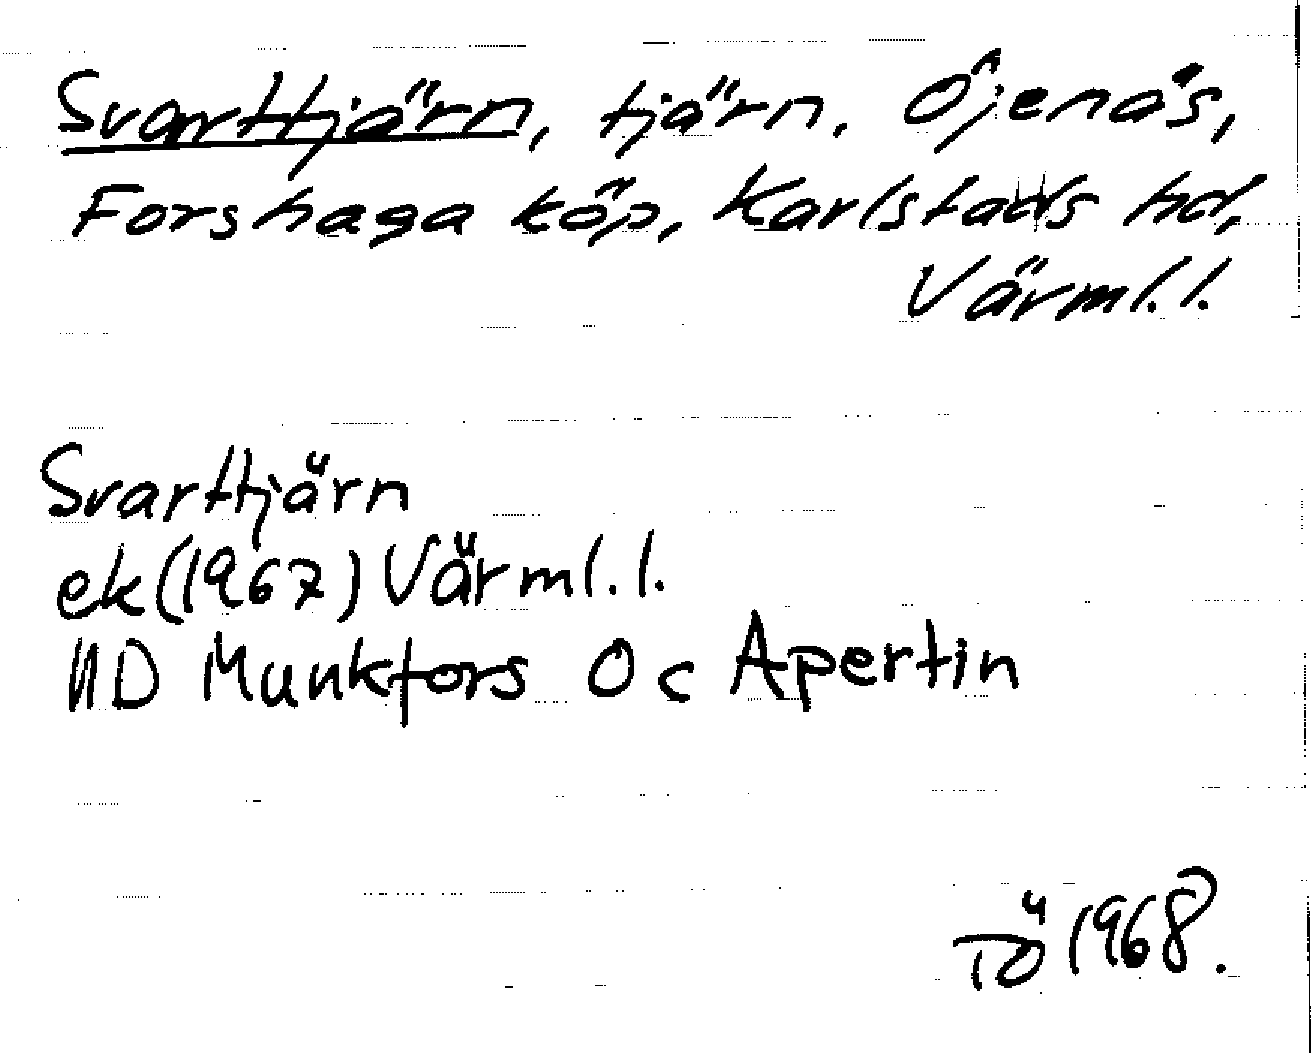 Svarttjärn, tjärn, Öjenäs,
Forshaga köp, Karlstads hd,
Värml.l.
Svarttjärn
ek (1967) Värml.l.
11D Munkfors 0c Apertin
TÖ 1968.